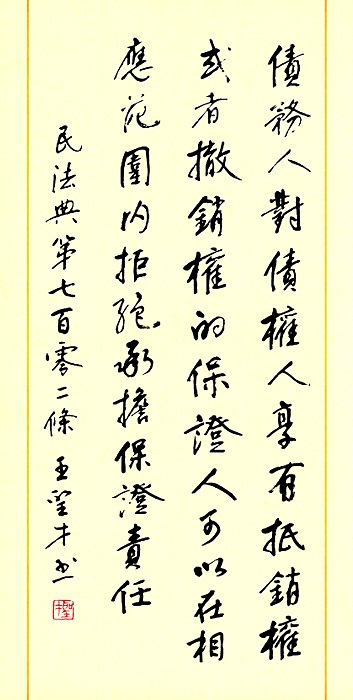 債務人對債權人享有抵銷權
或者撤銷權的保證人可以在相
應范圍内拒絕承擔保證責任
民法典第七百零二條 王聖才书